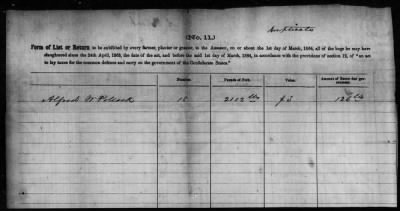 Duplicate
(No. 11.)
Form of List or Return to be exhibited by every farmer, planter or grazier, to the Assessor, on or about the 1st day of March, 1864, of all the hogs he may have
slaughtered since the 24th April, 1863, the date of the act, and before the said 1st day of March, 1864, in accordance with the provisions of section 12, of "an act
to lay taxes for the common defence and carry on the government of the Confederate States."
Number. Pounds of Pork. Value. Amount of Bacon due government.
Alfred W Pollock 18 2102 lbs 126